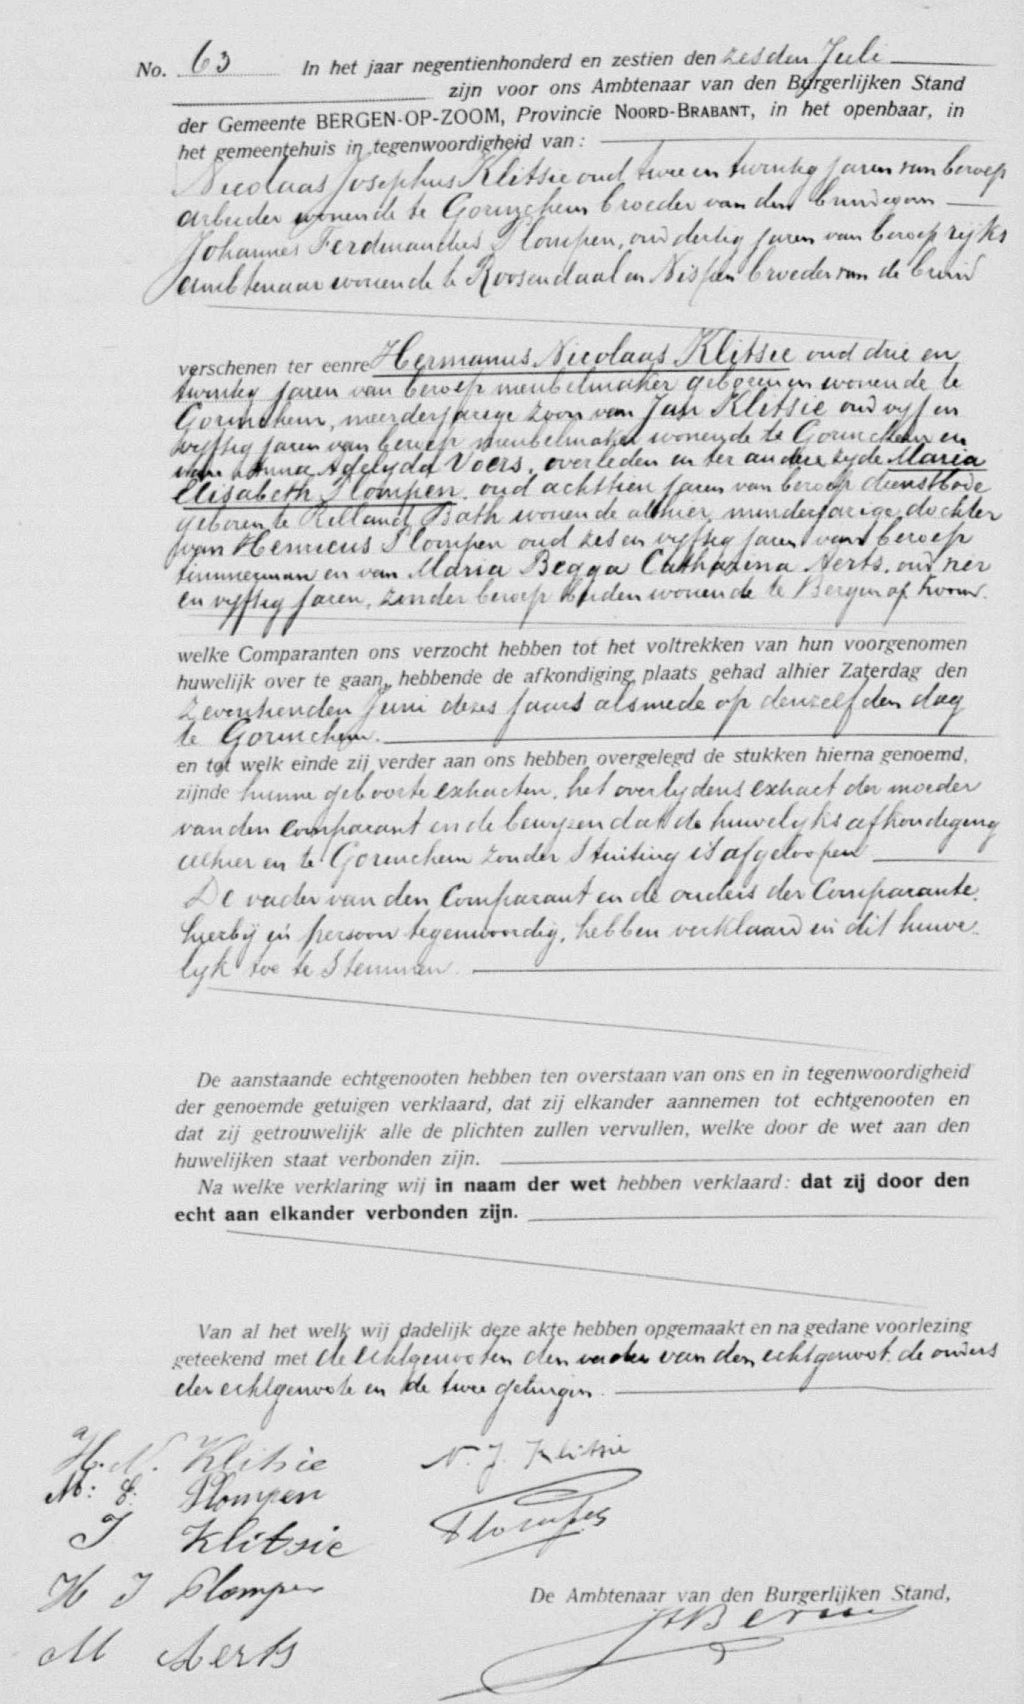 No. 63 In het jaar negentienhonderd en zestien den zesden Juli
zijn voor ons Ambtenaar van den Burgerlijken Stand
der Gemeente BERGEN-OP-ZOOM, Provincie NOORD-BRABANT, in het openbaar, in
het gemeentehuis in tegenwoordigheid van:
Nicolaas Josephus Klitsie oud twee en twintig jaren van beroep
arbeider wonende te Gorinchem broeder van den bruidegom
Johannes Ferdinandus Plompen, oud dertig jaren van beroep rijks
ambtenaar wonende te Roosendaal en Nispen broeder van de bruid
verschenen ter eenre Hermanus Nicolaas Klitsie oud drie en
twintig jaren van beroep meubelmaker geboren en wonende te
Gorinchem, meerderjarige zoon van Jan Klitsie oud vijf en
vijftig jaren van beroep meubelmaker wonende te Gorinchem en
van Anna Adelyda Voers, overleden en ter andere zyde Maria
Elisabeth Plompen, oud achttien jaren van beroep dienstbode
geboren te Rilland Bath wonende alhier, minderjarige dochter
van Henricus Plompen oud zes en vyftig jaren van beroep
timmerman en van Maria Begga Catharina Aerts, oud vier
en vyftig jaren, zonder beroep beiden wonende te Bergen op Zoom.
welke Comparanten ons verzocht hebben tot het voltrekken van hun voorgenomen
huwelijk over te gaan, hebbende de afkondiging plaats gehad alhier Zaterdag den
Zeventienden Juni dezes jaars alsmede op denzelfden dag
te Gorinchem.
en tot welk einde zij verder aan ons hebben overgelegd de stukken hierna genoemd,
zijnde hunne geboorte extracten, het overlydens extract der moeder
van den comparant en de bewyzen dat de huwelyks afkondiging
alhier en te Gorinchem zonder Stuiting is afgeloopen
De vader van den Comparant en de ouders der Comparante,
hierbij in persoon tegenwoordig, hebben verklaard in dit huwe-
lyk toe te Stemmen.
De aanstaande echtgenooten hebben ten overstaan van ons en in tegenwoordigheid
der genoemde getuigen verklaard, dat zij elkander aannemen tot echtgenooten en
dat zij getrouwelijk alle de plichten zullen vervullen, welke door de wet aan den
huwelijken staat verbonden zijn.
Na welke verklaring wij in naam der wet hebben verklaard: dat zij door den
echt aan elkander verbonden zijn.
Van al het welk wij dadelijk deze akte hebben opgemaakt en na gedane voorlezing
geteekend met de echtgenooten den vader van den echtgenoot de ouders
der echtgenoote en de twee getuigen.
H. N. Klitsie N. J. Klitsie
M: E. Plompen
J Klitsie Plompen
H J Plompen
De Ambtenaar van den Burgerlijken Stand,
M Aerts